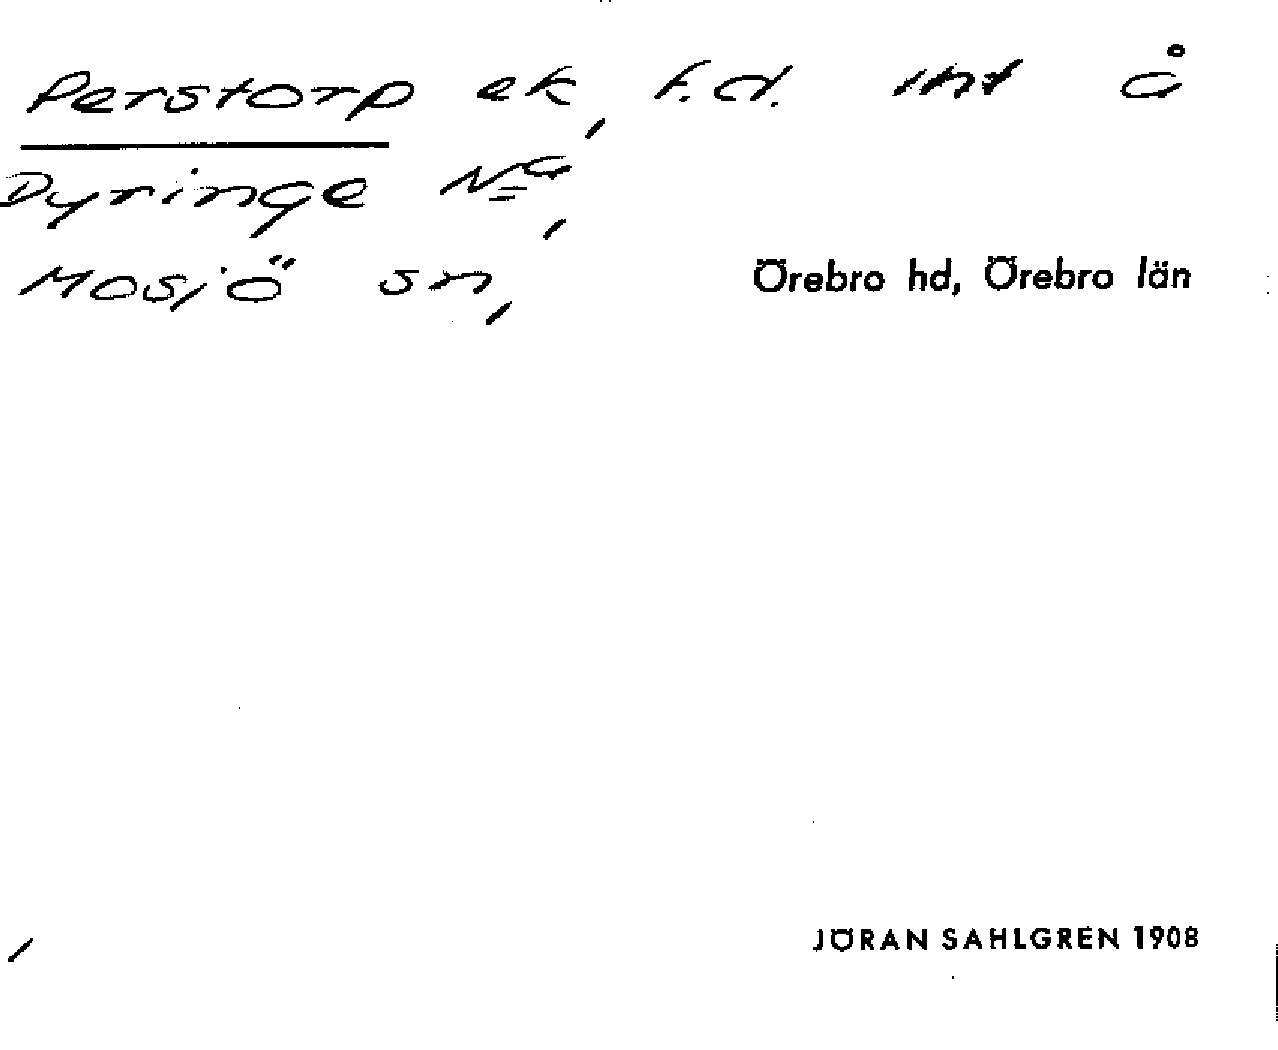 Perstorp ek, f.d. int å
Dyringe Nᵃ,
Mosjö sn, Örebro hd, Örebro län
JÖRAN SAHLGREN 1908